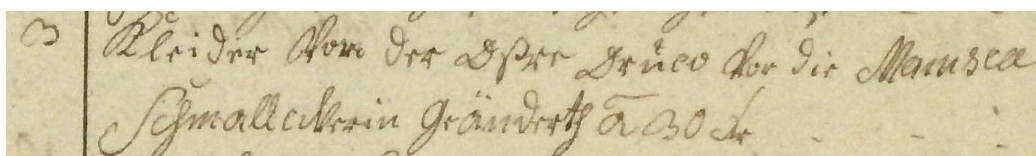 3 Kleider Von der Opre Druco Vor die Mamsell
Schmalleckerin Geänderth a 30 Xr